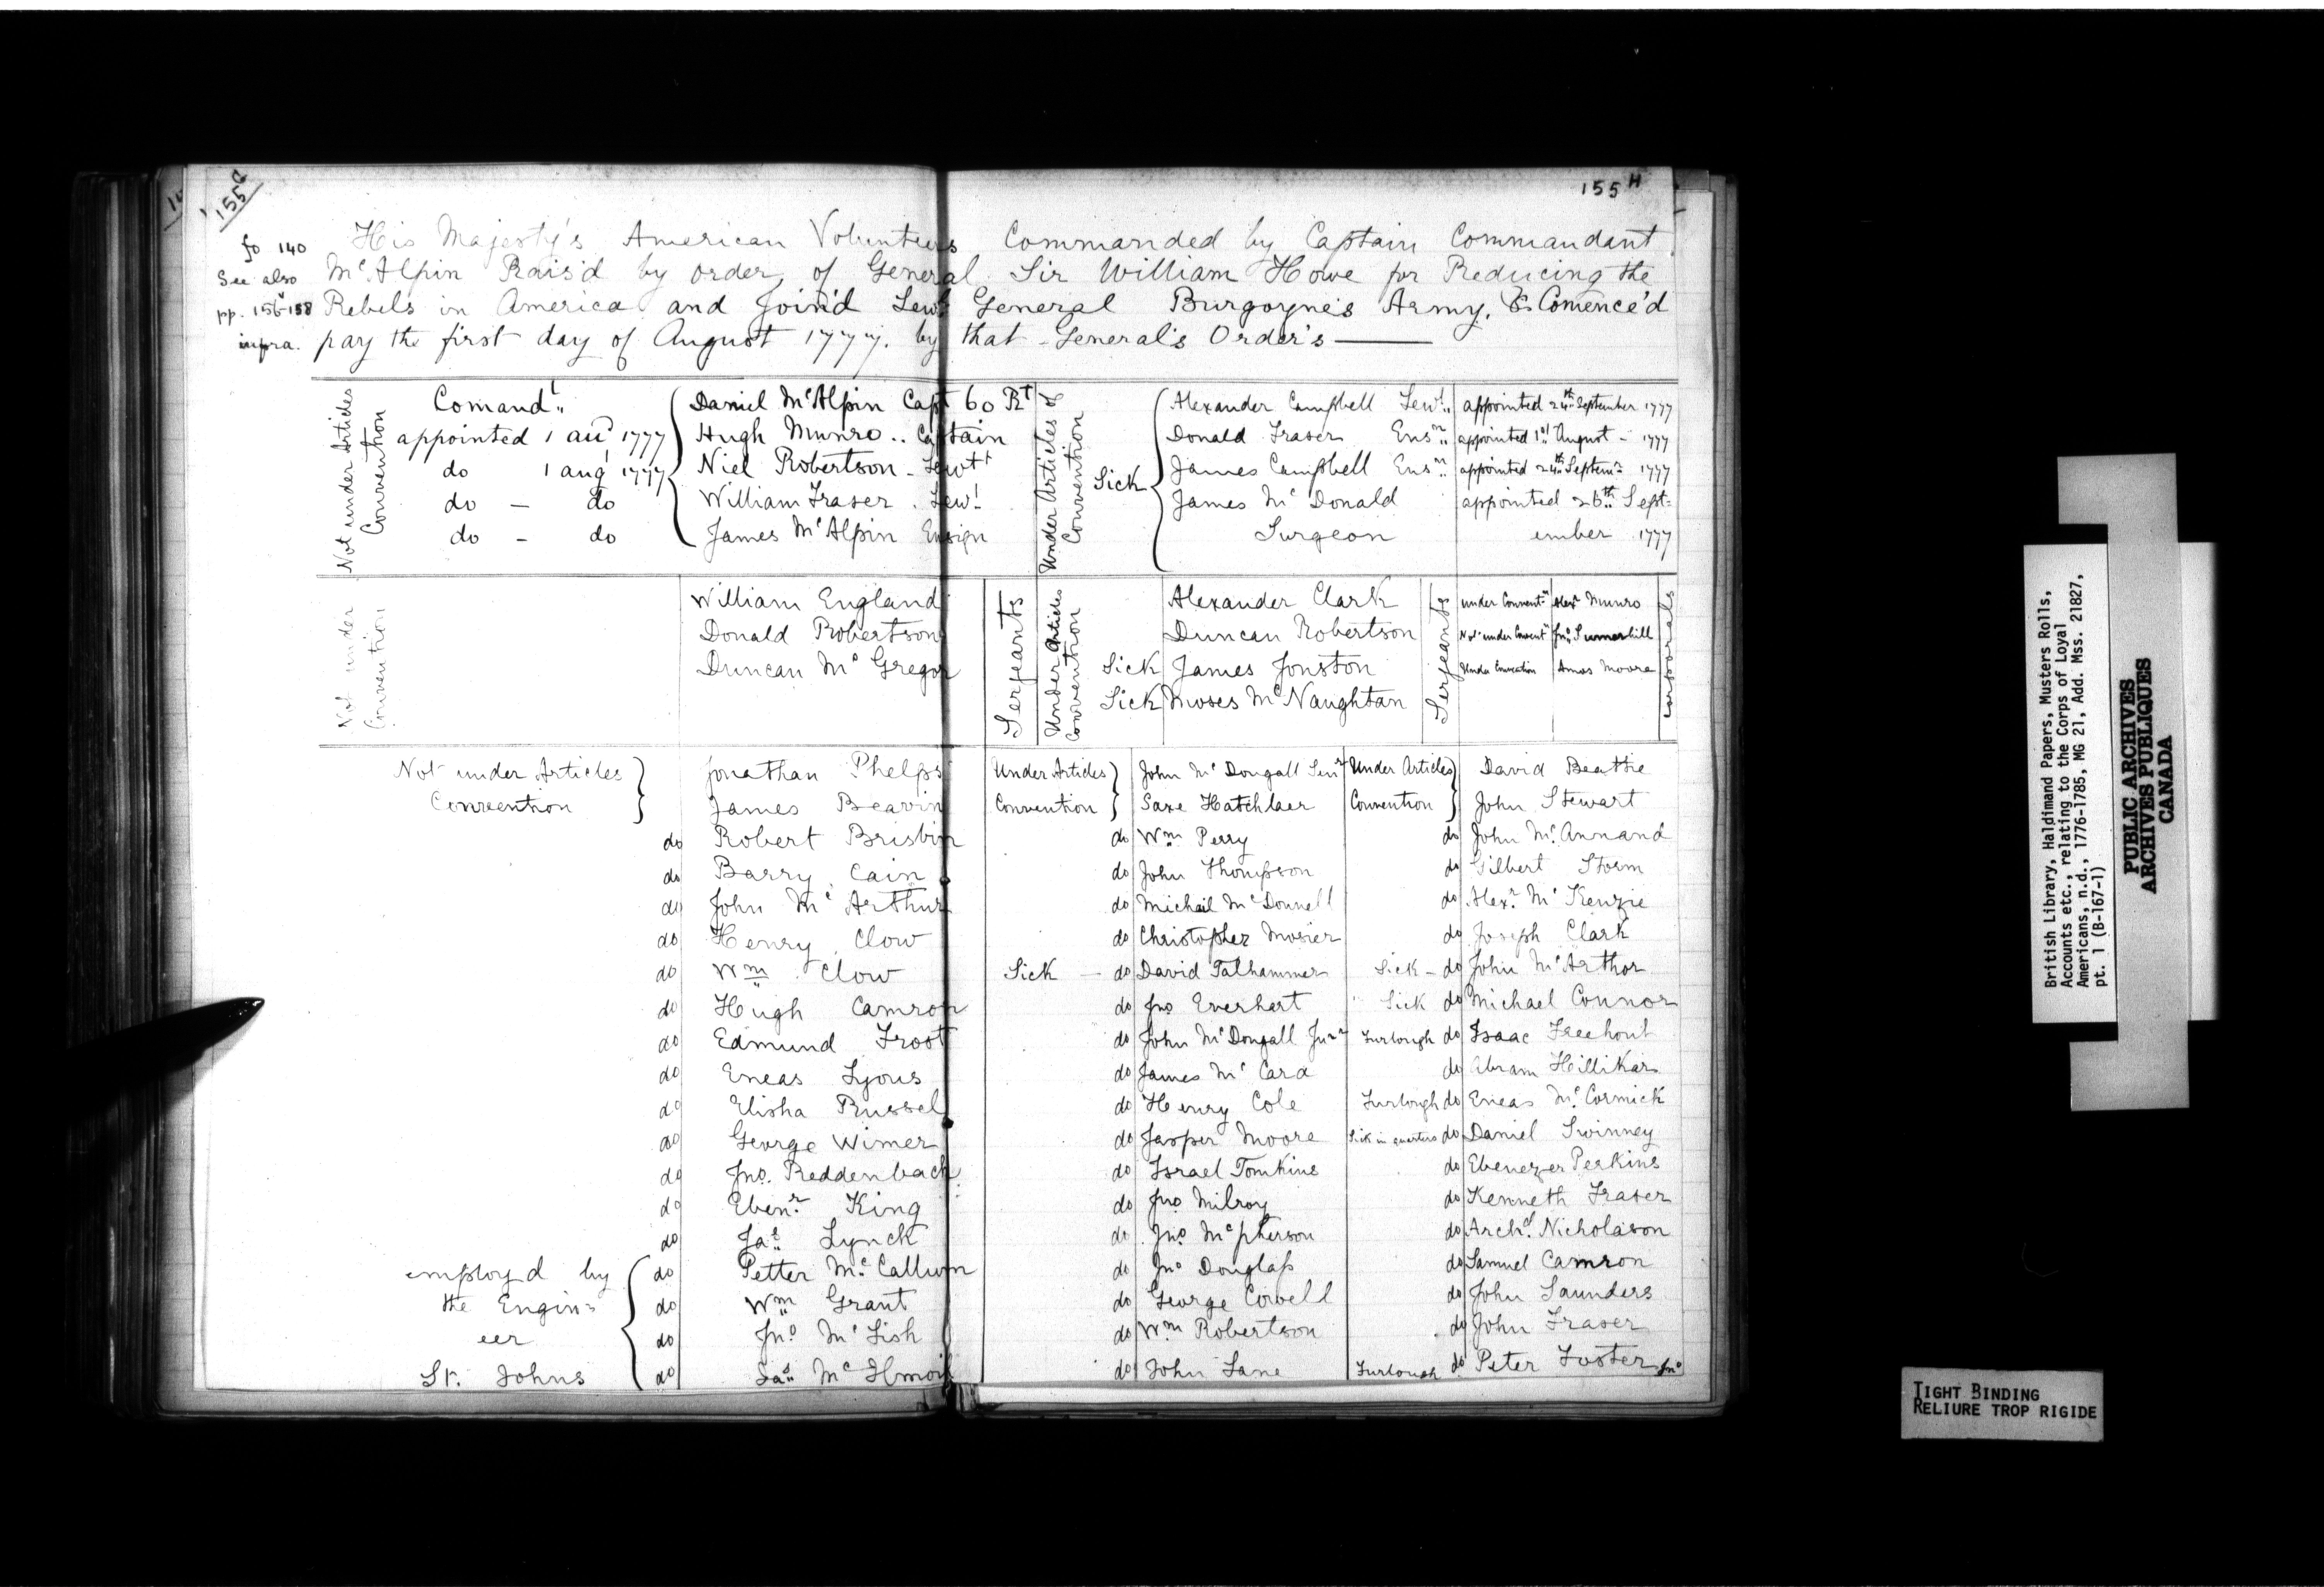 155 G
155 H
fo 140
See also
pp. 156-158
infra.
His Majesty's American Volunteers Commanded by Captain Commandant
McAlpin Rais'd by order of General Sir William Howe for Reducing the
Rebels in America and Join'd Lewt General Burgoyne's Army, & Comence'd
pay the first day of August 1777. by that General's Order's
Not under Articles Convention
Comandt Daniel McAlpin Capt 60 Rt
appointed 1 aug 1777 Hugh Munro .. Captain
do 1 aug 1777 Niel Robertson - Lewtt
do - do William Fraser . Lewt
do - do James McAlpin Ensign
Under Articles of Convention
Sick
Alexander Campbell Lewt appointed 24th September 1777
Donald Fraser Ensn appointed 1st August - 1777
James Campbell Ensn appointed 24th Septemr 1777
James McDonald appointed 26th Sept=
Surgeon ember 1777
Not under Convention
William England
Donald Robertson
Duncan McGregor
Serjeants
Under Articles Convention
Alexander Clark
Duncan Robertson
Sick James Jonston
Sick Moses McNaughtan
Serjeants
under Conventn Alexr Munro
Not under Conventn Jno Sumerhill
Under Convention Amos Moore
Corporals
Not under Articles Jonathan Phelps
Convention James Beavin
do Robert Brisbin
do Barry Cain
do John McArthur
do Henry Clow
do Wm Clow
do Hugh Camron
do Edmund Froot
do Eneas Lyons
do Elisha Russel
do George Wimer
do Jno. Reddenback
do Ebenr King
do Jas Lynck
employd by do Petter McCallum
the Engin= do Wm Grant
eer do Jno McFish
St. Johns do Jas
Under Articles John McDougall Senr
Convention Saxe Hatchlaer
do Wm Perry
do John Thompson
do Michail McDonnell
do Christopher Mosier
Sick - do David Talhammer
do Jno Everhart
do John McDougall Junr
do James McCara
do Henry Cole
do Jasper Moore
do Israel Tomkins
do Jno Milroy
do Jno Mcpherson
do Jno Douglass
do George Cowell
do Wm Robertson
do John Lane
Under Articles David Beattie
Convention John Stewart
do John McAnnand
do Gilbert Storm
do Alexr McKenzie
do Joseph Clark
Sick - do John McArthor
Sick do Michael Connor
Furlough do Isaac Freehout
do Abram Hillikar
Furlough do Eneas McCormick
Sick in quarters do Daniel Swinney
do Ebenezer Perkins
do Kenneth Fraser
do Archd Nicholason
do Samuel Camron
do John Saunders
do John Fraser
Furlough do Peter Foster Jno
British Library, Haldimand Papers, Musters Rolls,
Accounts etc., relating to the Corps of Loyal
Americans, n.d., 1776-1785, MG 21, Add. Mss. 21827,
pt. 1 (B-167-1)
PUBLIC ARCHIVES
ARCHIVES PUBLIQUES
CANADA
TIGHT BINDING
RELIURE TROP RIGIDE